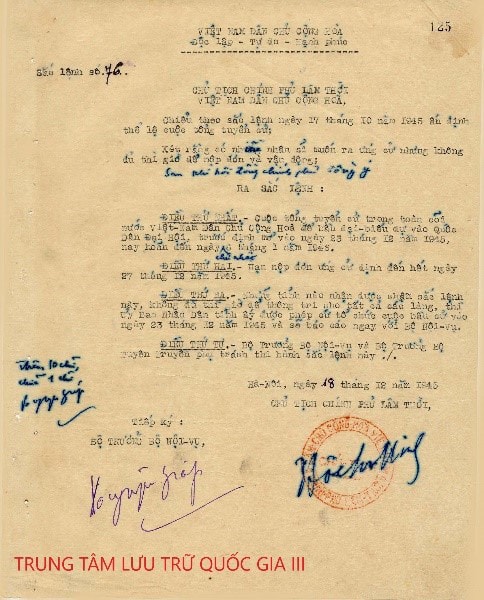 VIỆT NAM DÂN CHỦ CỘNG HÒA
Độc lập - Tự do - Hạnh phúc
125
Sắc lệnh số. 76.
CHỦ TỊCH CHÍNH PHỦ LÂM THỜI
VIỆT NAM DÂN CHỦ CỘNG HÒA,
Chiểu theo sắc lệnh ngày 17 tháng 10 năm 1945 ấn định
thể lệ cuộc tổng tuyển cử;
Xét rằng có nhiều nhân sĩ muốn ra ứng cử nhưng không
đủ thì giờ để nộp đơn và vận động;
Sau khi hội đồng chính phủ đồng ý
RA SẮC LỆNH :
ĐIỀU THỨ NHẤT.- Cuộc tổng tuyển cử trong toàn cõi
nước Việt-Nam Dân Chủ Cộng Hoà để bầu đại-biểu dự vào Quốc
Dân Đại Hội, trước định mở vào ngày 23 tháng 12 năm 1945,
nay hoãn đến ngày 6 tháng 1 năm 1946.
chủ nhật
ĐIỀU THỨ HAI.- Hạn nộp đơn ứng cử định đến hết ngày
27 tháng 12 năm 1945.
ĐIỀU THỨ BA.- Những tỉnh nào nhận được chậm sắc lệnh
này, không đủ thì giờ để thông tri cho tất cả các làng, thì
Uỷ Ban Nhân Dân tỉnh ấy được phép cứ tổ chức cuộc bầu cử vào
ngày 23 tháng 12 năm 1945 và sẽ báo cáo ngay với Bộ Nội-Vụ.
ĐIỀU THỨ TƯ.- Bộ Trưởng Bộ Nội-Vụ và Bộ Trưởng Bộ
Tuyên Truyền phụ trách thi hành sắc lệnh này ./.
thêm 10 chữ,
chữa 1 chữ
Hà-Nội, ngày 18 tháng 12 năm 1945
CHỦ TỊCH CHÍNH PHỦ LÂM THỜI,
Tiếp ký :
BỘ TRƯỞNG BỘ NỘI-VỤ,
TRUNG TÂM LƯU TRỮ QUỐC GIA III